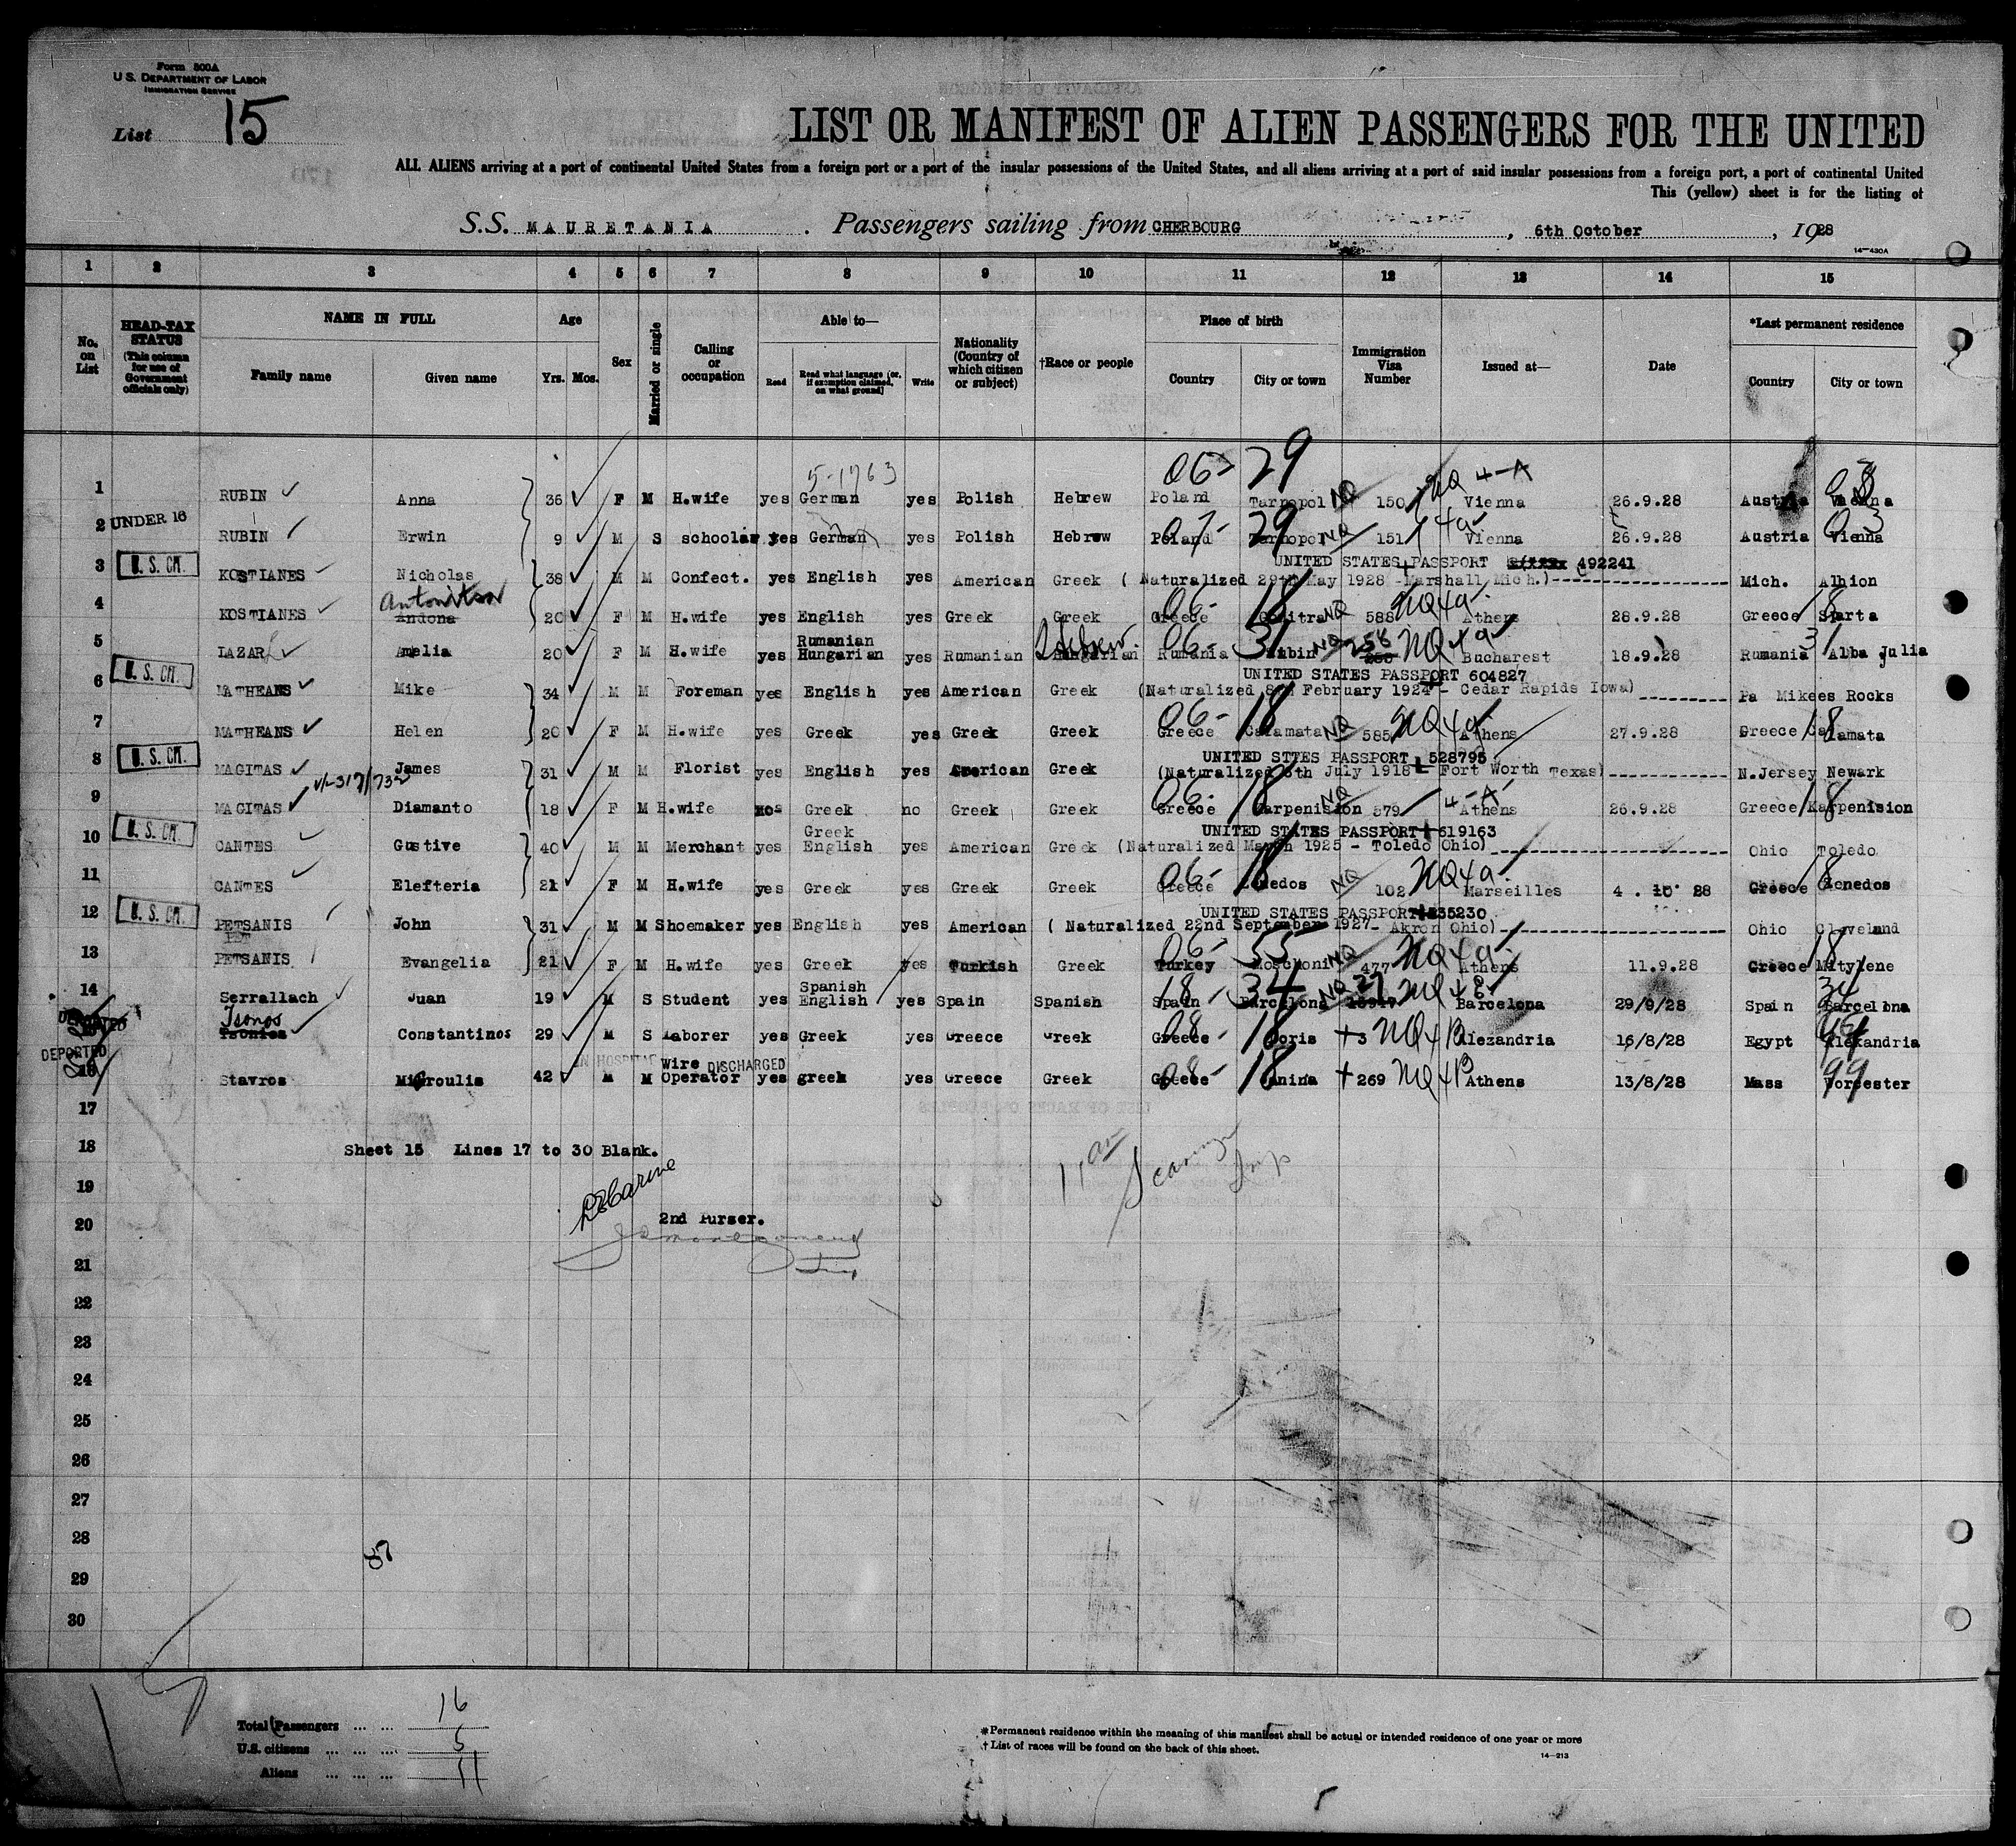 Form 500A
U S. DEPARTMENT OF LABOR
IMMIGRATION SERVICE
List 15
LIST OR MANIFEST OF ALIEN PASSENGERS FOR THE UNITED
ALL ALIENS arriving at a port of continental United States from a foreign port or a port of the insular possessions of the United States, and all aliens arriving at a port of said insular possessions from a foreign port, a port of continental United
This (yellow) sheet is for the listing of
S.S. MAURETANIA . Passengers sailing from CHERBOURG , 6th October , 1928
14-430A
1 2 3 4 5 6 7 8 9 10 11 12 13 14 15
No. on List
HEAD-TAX STATUS (This column for use of Government officials only)
NAME IN FULL
Family name Given name
Age
Yrs. Mos.
Sex
Married or single
Calling or occupation
Able to—
Read Read what language (or, if exemption claimed, on what ground) Write
Nationality (Country of which citizen or subject)
†Race or people
Place of birth
Country City or town
Immigration Visa Number
Issued at—
Date
*Last permanent residence
Country City or town
5-1763 06- 29 NQ 4-A
1 RUBIN Anna 36 F M H.wife yes German yes Polish Hebrew Poland Tarnopol NQ 150 Vienna 26.9.28 Austria Vienna
2 UNDER 16 RUBIN Erwin 9 M S schoolar yes German yes Polish Hebrew Poland 29 Tarnopol NQ 151 4a Vienna 26.9.28 Austria Vienna
UNITED STATES PASSPORT 492241
3 U.S. CIT. KOSTIANES Nicholas 38 M M Confect. yes English yes American Greek ( Naturalized 29th May 1928 -Marshall Mich.) Mich. Albion
Antonitsa
4 KOSTIANES Andona 20 F M H.wife yes English yes Greek Greek Greece 06- 18 NQ 588 NQ4a Athens 28.9.28 Greece 18 Sparta
Rumanian
5 LAZAR Amelia 20 F M H.wife yes Hungarian yes Rumanian Hebrew Hungarian Rumania 06- 31 NQ 256 NQ4a Bucharest 18.9.28 Rumania 31 Alba Julia
UNITED STATES PASSPORT 604827
6 U.S. CIT. MATHEANS Mike 34 M M Foreman yes English yes American Greek (Naturalized 8th February 1924 - Cedar Rapids Iowa) Pa Mikees Rocks
7 MATHEANS Helen 20 F M H.wife yes Greek yes Greek Greek Greece 06- 18 Calamata NQ 585 NQ4a Athens 27.9.28 Greece 18 Calamata
UNITED STTES PASSPORT 528795
8 U.S. CIT. MAGITAS James 31 M M Florist yes English yes American Greek (Naturalized 8th July 1918 - Fort Worth Texas) N.Jersey Newark
9 MAGITAS Diamanto 18 F M H.wife no Greek no Greek Greek Greece 06- 18 Carpenision NQ 579 4-A Athens 26.9.28 Greece 18 Karpenision
UNITED STATES PASSPORT 619163
Greek
10 U.S. CIT. CANTES Gustive 40 M M Merchant yes English yes American Greek (Naturalized March 1925 - Toledo Ohio) Ohio Toledo
11 CANTES Elefteria 21 F M H.wife yes Greek yes Greek Greek Greece 06- 18 NQ 102 NQ4a Marseilles 4 . 10 28 Greece 18
UNITED STATES PASSPORT 535230
12 U.S. CIT. PETSANIS John 31 M M Shoemaker yes English yes American ( Naturalized 22nd September 1927 - Akron Ohio) Ohio Cleveland
PET
13 PETSANIS Evangelia 21 F M H.wife yes Greek yes Turkish Greek Turkey 06- 55 Moschoni NQ 477 NQ4a Athens 11.9.28 Greece 18 Mitylene
Spanish
14 Serrallach Juan 19 M S Student yes English yes Spain Spanish Spain 18- 34 Barcelona NQ 27 NQ4E Barcelona 29/9/28 Spain 34 Barcelona
Tsonos
DEPORTED Tsonies Constantinos 29 M S Laborer yes Greek yes Greece Greek Greece 08- 18 Doris +3 NQ4B Alezandria 16/8/28 Egypt Alexandria
DEPORTED IN HOSPITAL Wire DISCHARGED
16 Stavros Migroulis 42 M M Operator yes greek yes Greece Greek Greece 08- 18 Janina +269 NQ4B Athens 13/8/28 Mass 99 Worcester
17
18 Sheet 15 Lines 17 to 30 Blank.
19
20 2nd Purser.
21
22
23
24
25
26
27
28
29
30
Total Passengers 16
U.S. citizens 5
Aliens 11
*Permanent residence within the meaning of this manifest shall be actual or intended residence of one year or more
†List of races will be found on the back of this sheet.
14-213